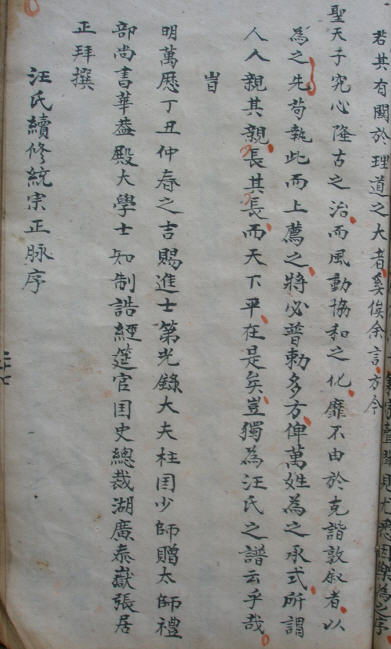 若其有關於理道之大者奚俟余言方今
聖天子究心隆古之治而風動協和之化靡不由於克諧敦叙者以
為之先苟執此而上薦之將必普勅多方俾萬姓為之承式所謂
人人親其親長其長而天下平在是矣豈獨為汪氏之譜云乎哉
旹
明萬歷丁丑仲春之吉賜進士第光錄大夫柱囯少師贈太師禮
部尚書華蓋殿大學士知制誥經筵官囯史總裁湖廣泰嶽張居
正拜撰
汪氏續修統宗正脉序
二十七